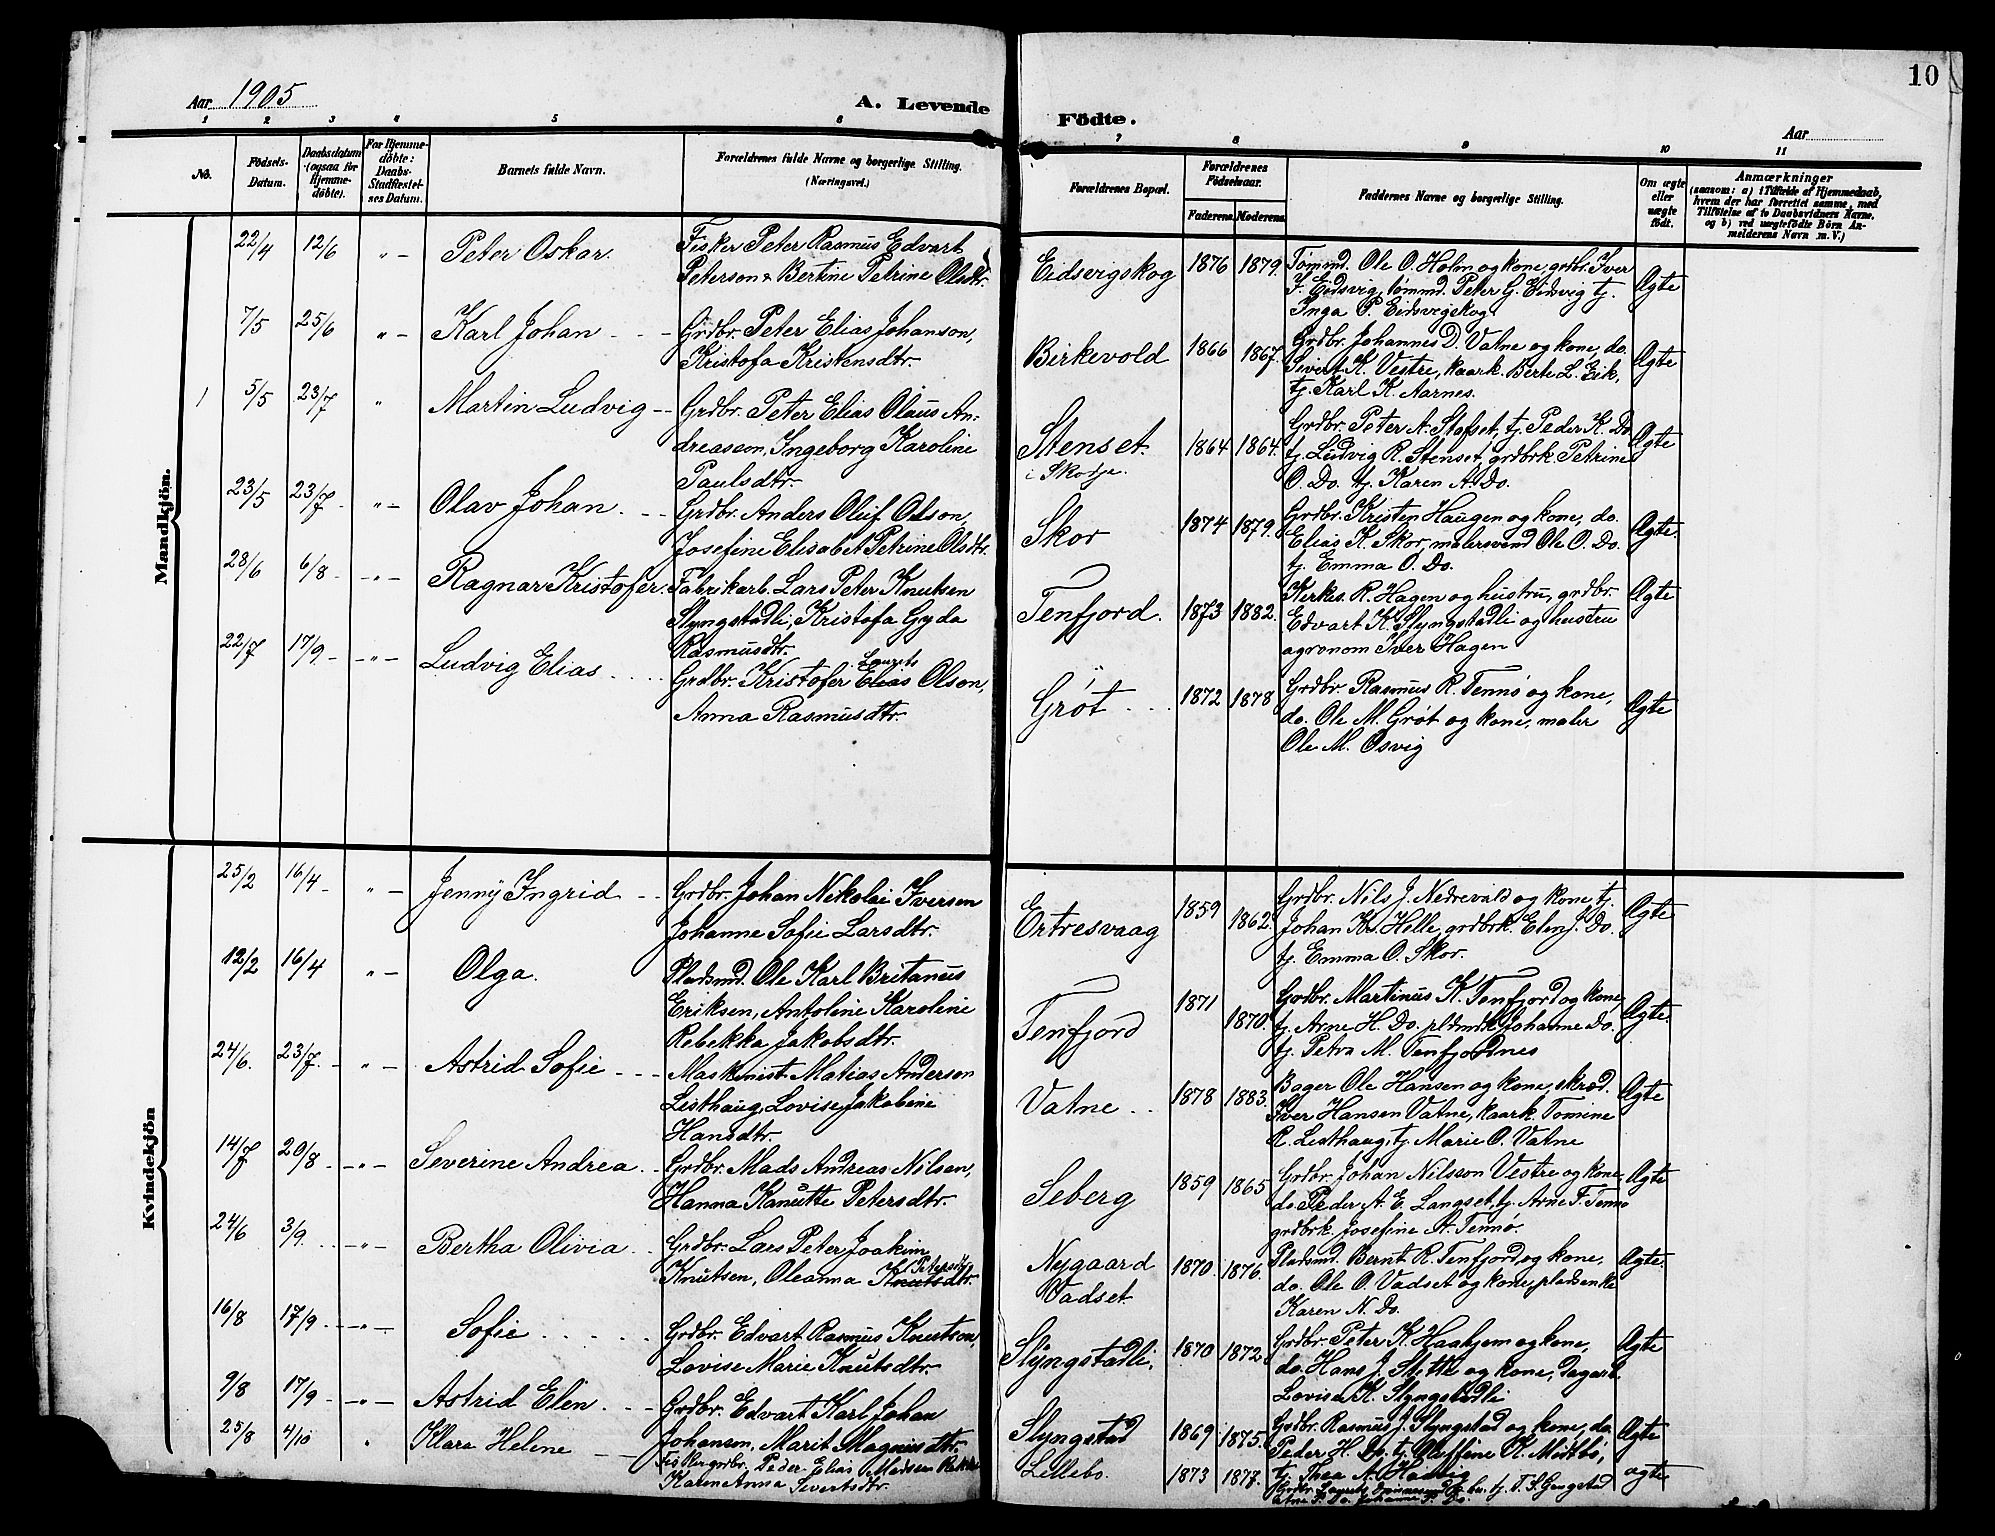 10
Aar 1905
A. Levende
Födte.
Aar
1 2 3 4 5 6
7 8 9 10 11
No.
Födsels-
Datum.
Daabsdatum
(ogsaa for
Hjemme-
døbte).
For Hjemme-
døbte:
Daabs-
Stadfæstel-
ses Datum.
Barnets fulde Navn.
Forældrenes fulde Navne og borgerlige Stilling.
(Næringsvei.)
Forældrenes Bopæl.
Forældrenes
Födselsaar.
Faderens.
Moderens.
Faddernes Navne og borgerlige Stilling.
Om ægte
eller
uægte
födt.
Anmærkninger
(saasom: a) i Tilfælde af Hjemmedaab,
hvem der har forrettet samme, med
Tilföielse af to Daabsvidners Navne,
og b) ved uægtefödte Börn An-
melderens Navn m. V.)
Mandkjön.
22/4 12/6 " – Peter Oskar. Fisker Peter Rasmus Edvart
Peterson & Bertine Petrine Olsdtr.
Eidsvigskog 1876 1879. Tømmd. Ole O. Holm og kone, grdbr. Iver
I. Eidsvig, tømmd. Peter G. Eidsvig tj.
Inga P. Eidsvigskog
Ægte
7/5 25/6 " – Karl Johan Grdbr. Peter Elias Johanson,
Kristofa Kristensdtr.
Birkevold 1866 1867. Grdbr. Johannes D. Vatne og kone, do.
Sivert K. Vestre, kaark. Berte L. Eik,
tj. Karl K. Aarnes.
Ægte
1 5/5 23/7 " Martin Ludvig Grdbr. Peter Elias Olaus An-
dreasson, Ingeborg Karoline
Paulsdtr.
Stenset
i Skodje. 1864 1864. Grdbr. Peter A. Stafset, tj. Peder K. Do
tj. Ludvig R. Stenset, grdbrk. Petrine
O. Do. tj. Karen A. Do.
Ægte
23/5 23/7 " – Olav Johan Grdbr. Anders Oluf Olson,
Josefine Elisabet Petrine Olsdtr.
Skor 1874 1879. Grdbr. Kristen Haugen og kone, do.
Elias K. Skor, malersvend Ole O. Do.
tj. Emma O. Do.
Ægte
28/6 6/8 " – Ragnar Kristofer. Fabrikarb. Lars Peter Knutsen
Slyngstadli, Kristofa Gyda
Rasmusdtr.
Tenfjord. 1873 1882. Kirkes. R. Hagen og hustru, grdbr.
Edvart K. Slyngstadli og hustru
agronom Iver Hagen
Ægte
22/7 17/9 " – Ludvig Elias Grdbr. Kristofer Elias Laurits Olson,
Anna Rasmusdtr.
Grøt 1872 1878 Grdbr. Rasmus R. Tennø og kone,
do. Ole M. Grøt og kone, maler
Ole M. Osvig
Ægte
Kvindekjön
25/2 16/4 " – Jenny Ingrid Grdbr. Johan Nikolai Iversen
Johanne Sofie Larsdtr.
Ertresvaag 1859 1862. Grdbr. Nils J. Nedrevald og kone tj.
Johan K. Helle, grdbrk. Elen J. Do.
tj. Emma O. Skor.
Ægte
12/2 16/4 " – Olga. Pladsmd. Ole Karl Britanus
Eriksen, Antoline Karoline
Rebekka Jakobsdtr.
Tenfjord 1871 1870. Grdbr. Martinus K. Tenfjord og kone
tj. Arne H. Do. pldmdk. Johanne Do.
tj. Petra M. Tenfjordnes
Ægte.
24/6. 23/7. " – Astrid Sofie Maskinist Matias Anderson
Listhaug, Lovise Jakobine
Hansdtr.
Vatne 1878 1883. Bager Ole Hansen og kone, skræd.
Iver Hansen Vatne, kaark. Tomine
R. Listhaug, tj. Marie O. Vatne
Ægte
14/7 20/8 " – Severine Andrea Grdbr. Mads Andreas Nilsen,
Hanna Kanutte Petersdtr.
Seberg 1859 1865 Grdbr. Johan Nilsson Vestre og kone
do. Peder A. E. Langset, tj. Arne F. Tennø
grdbrk. Josefine A. Tennø.
Ægte
24/6 3/9. " – Bertha Olivia Grdbr. Lars Peter Joakim
Knutsen, Oleanna Knutsdtr. Petersdtr
Nygaard
Vadset 1870. 1876. Pladsmd. Bernt R. Tenfjord og kone,
do. Ole O. Vadset og kone, pladsenke
Karen N. Do.
Ægte.
16/8 17/9. " – Sofie Grdbr. Edvart Rasmus Knutson,
Lovise Marie Knutsdtr.
Slyngstadli. 1870 1872 Grdbr. Peter K. Haahjem og kone,
do. Hans J. Slette og kone, dagarb.
Lovise K. Slyngstadli
Ægte
9/8 17/9 " – Astrid Elen Grdbr. Edvart Karl Johan
Johansen, Marit Magnusdtr.
Slyngstad 1869 1875. Grdbr. Rasmus J. Slyngstad og kone, do.
Peder H. Do. tj. Oluffine O. Midtbø,
tj. Thea A.
Ægte
25/8 4/10 " Klara Helene Peder Elias Madsen
Karen Anna Sivertsdtr.
Lillebo. 1873 1877. Grdbr. Laurits
ægte